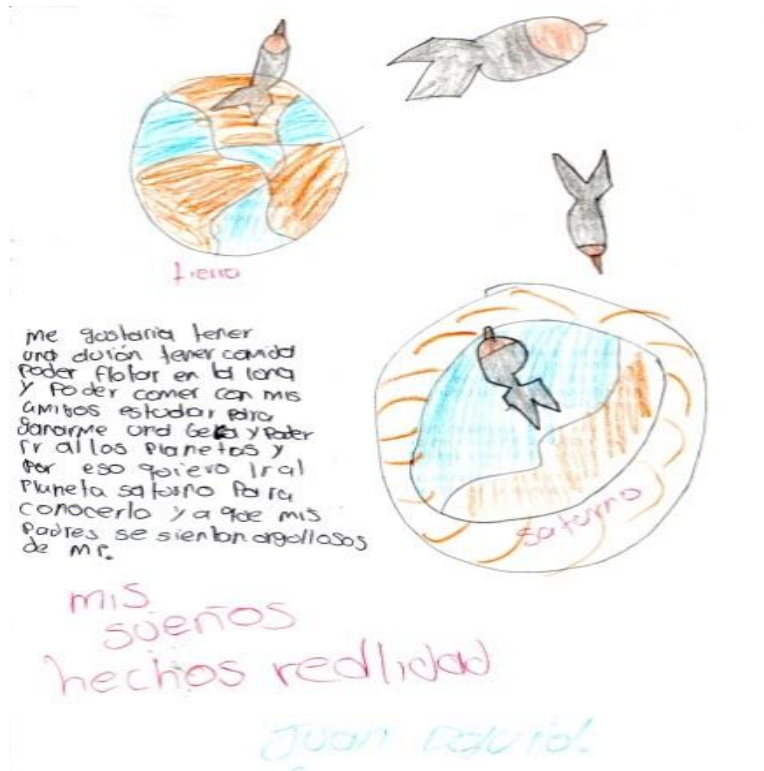 tierra
me gustaria tener
una avión tener comida
poder flotar en la lona
y poder comer con mis
amigos estudiar para
ganarme una beca y poder
ir allos planetos y
por eso quiero ir al
planeta satorno para
conocerlo y a que mis
padres se sientan orgollosos
de mi.
satorno
mis
sueños
hechos realidad
Juan David.